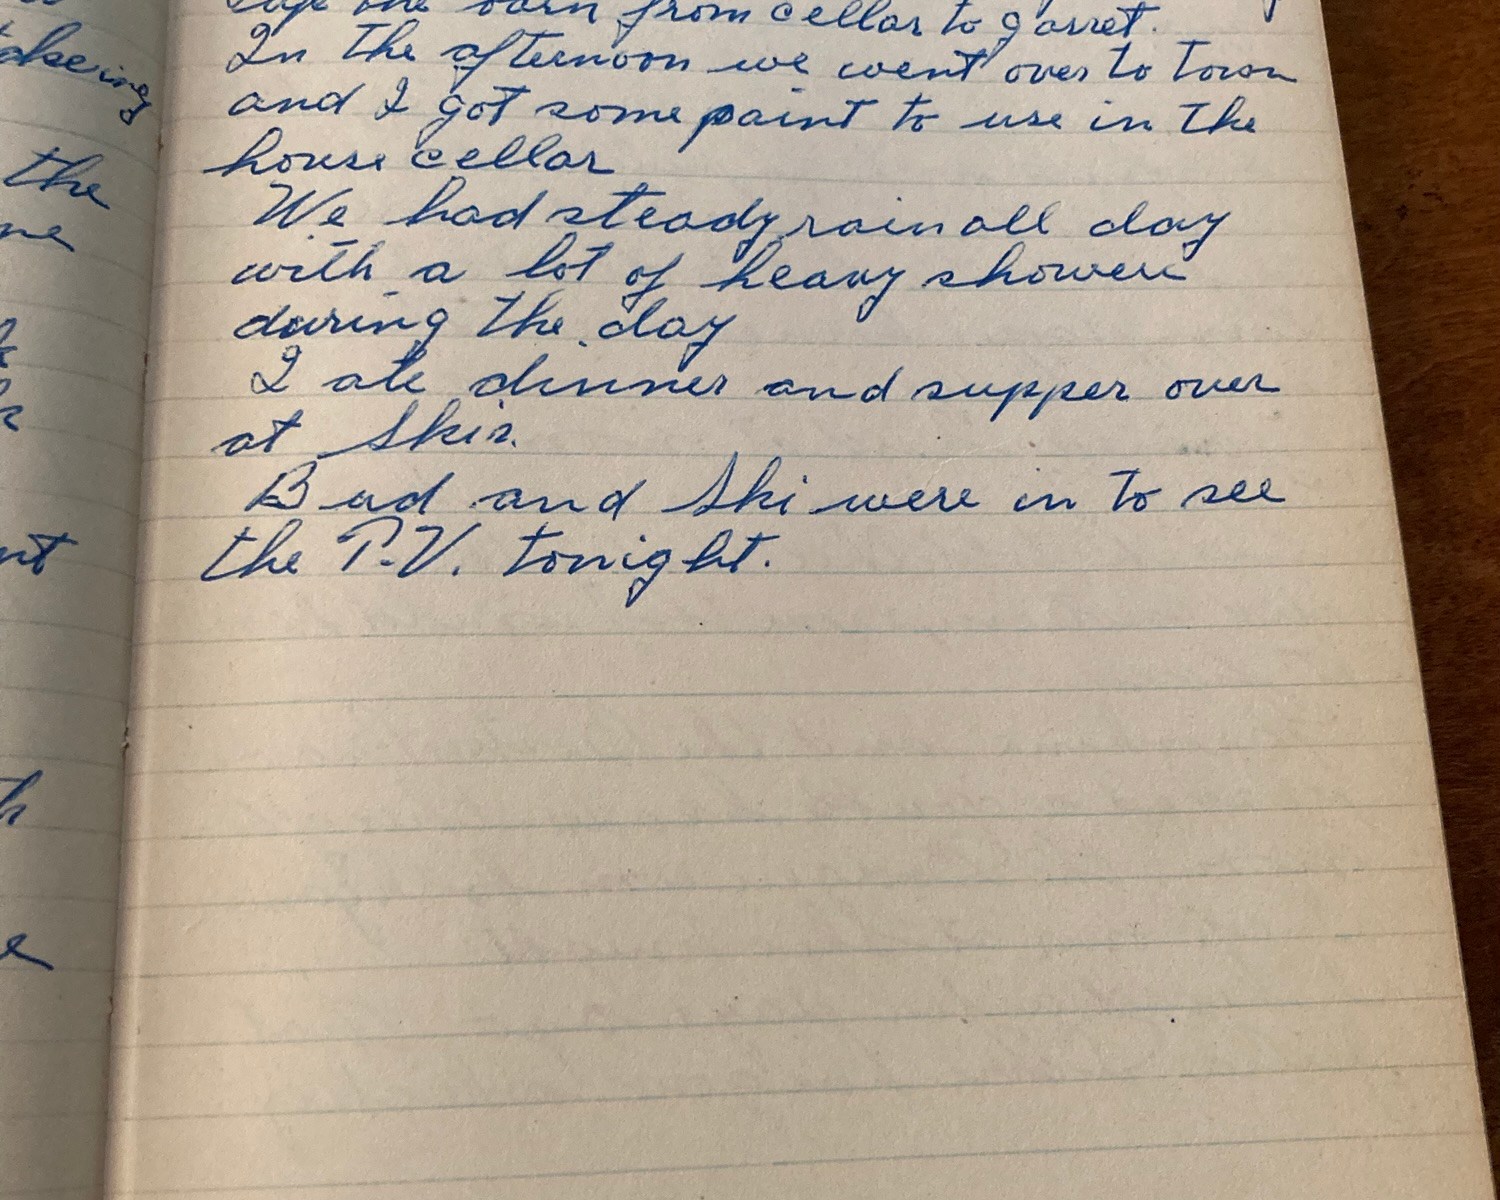 the barn from cellar to garret.
In the afternoon we went over to town
and I got some paint to use in the
house cellar
We had steady rain all day
with a lot of heavy showers
during the day
I ate dinner and supper over
at Skis.
Bud and Ski were in to see
the T.V. tonight.
the